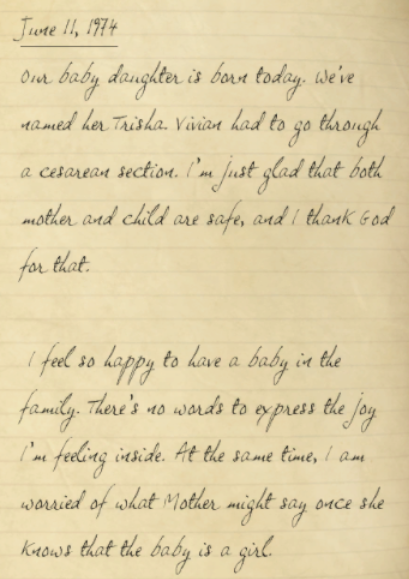 June 11, 1974
Our baby daughter is born today. We've
named her Trisha. Vivian had to go through
a cesarean section. I'm just glad that both
mother and child are safe, and I thank God
for that.
I feel so happy to have a baby in the
family. There's no words to express the joy
I'm feeling inside. At the same time, I am
worried of what Mother might say once she
knows that the baby is a girl.